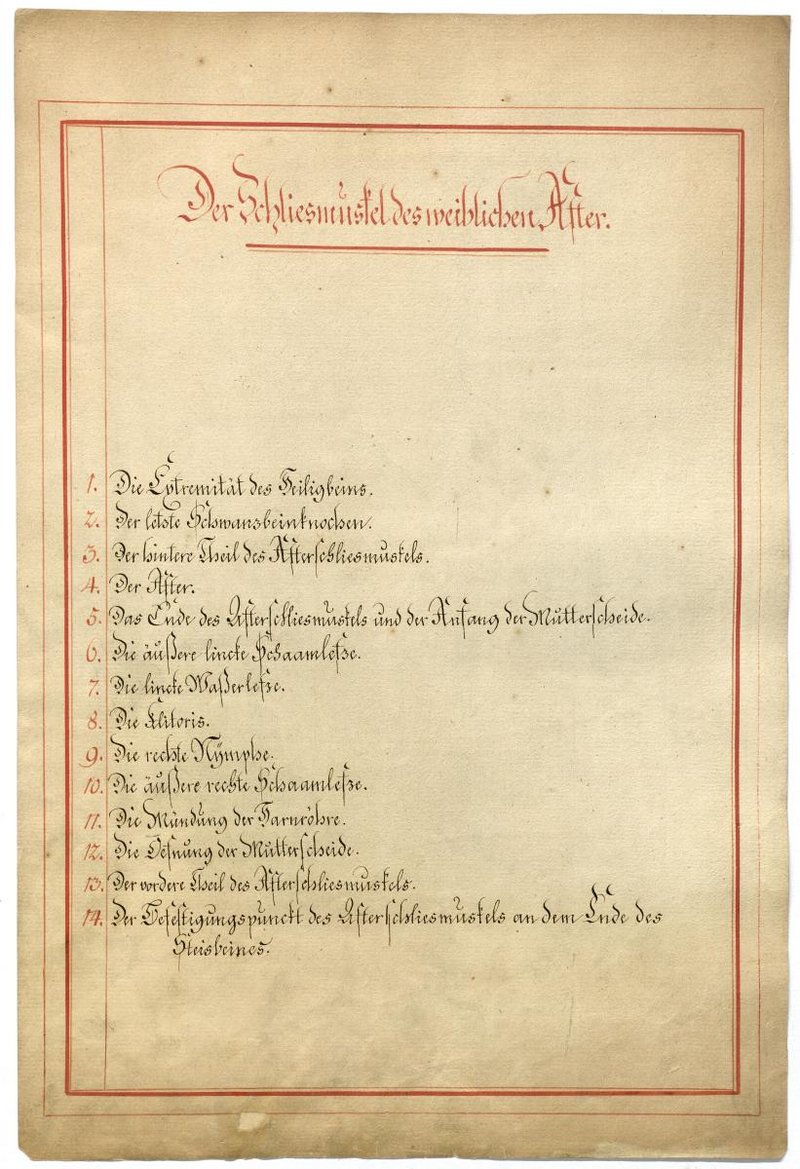 Der Schliesmuskel des weiblichen After.
1. Die Extremität des Heiligbeins.
2. Der letste Schwansbeinknochen.
3. Der hintere Theil des Afterschliesmuskels.
4. Der After.
5. Das Ende des Afterschliesmuskels und der Anfang der Mutterscheide.
6. Die äußere lincke Schaamlefze.
7. Die lincke Waßerlefze.
8. Die Klitoris.
9. Die rechte Nÿmphe.
10. Die äußere rechte Schaamlefze.
11. Die Mündung der Harnröhre.
12. Die Oefnung der Mutterscheide.
13. Der vordere Theil des Afterschliesmuskels.
14. Der Befestigungspunckt des Afterschliesmuskels an dem Ende des
Steisbeines.